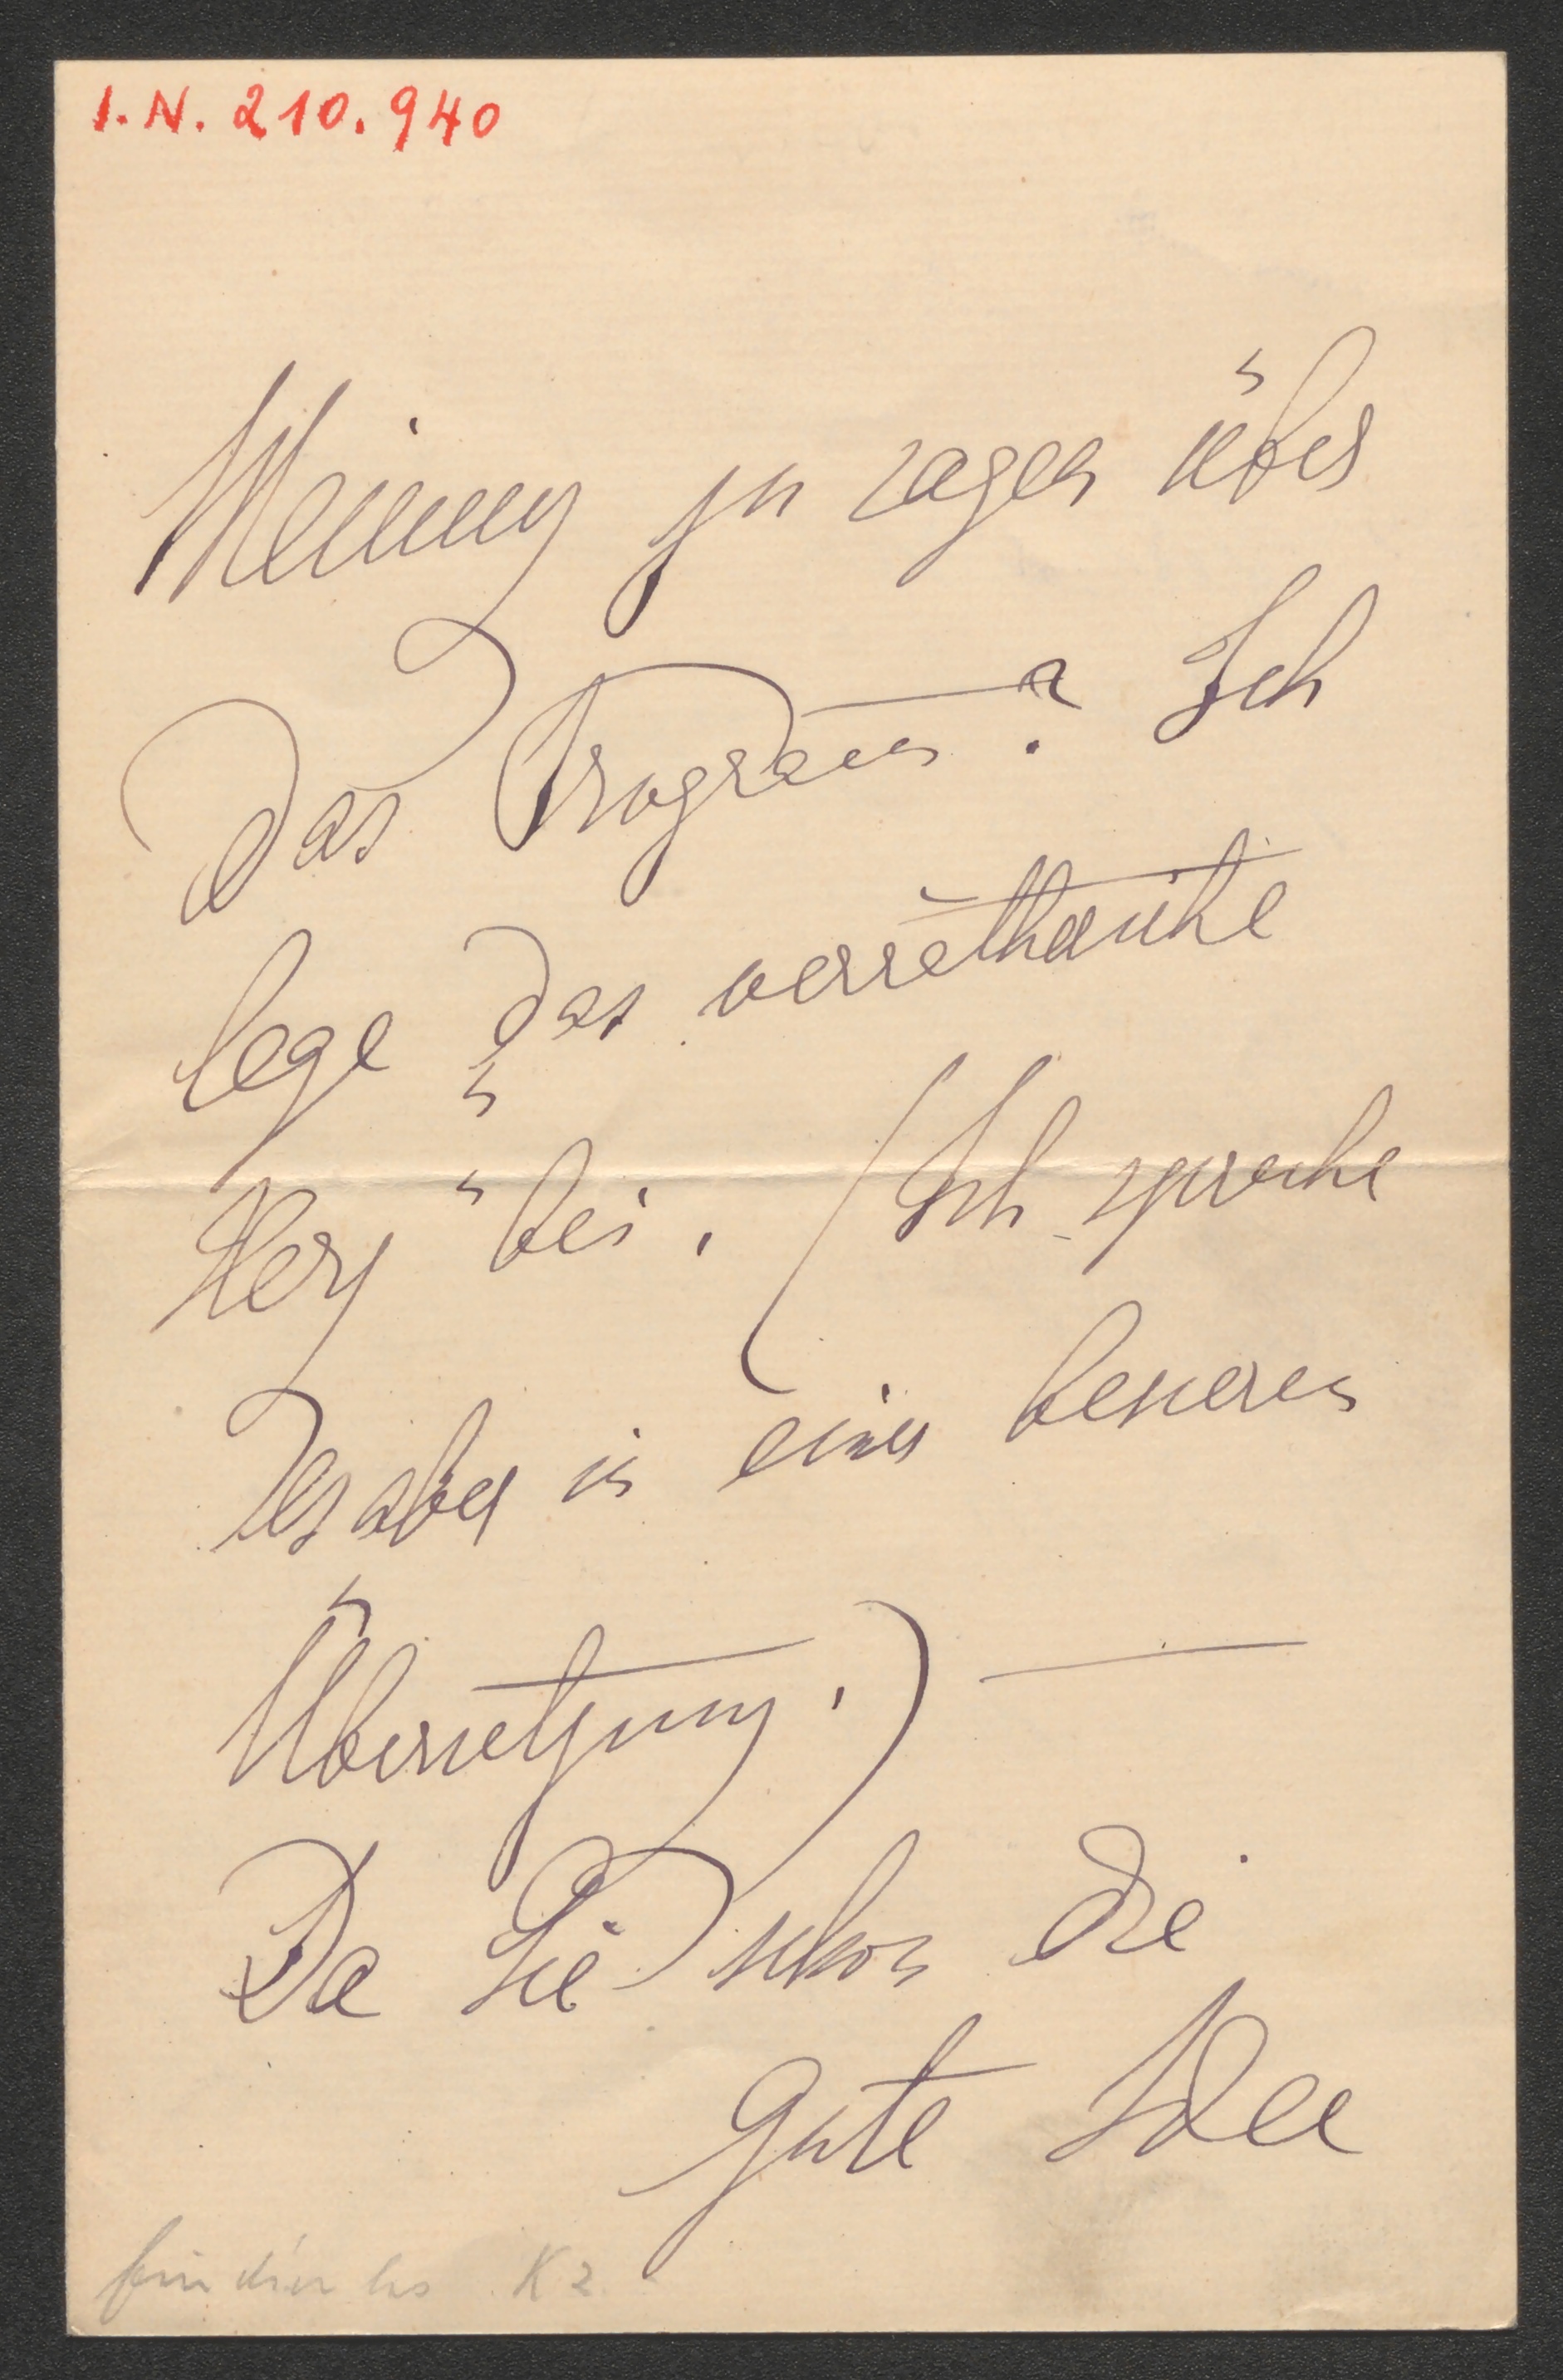 I.N. 210.940
Meinung zu sagen über
das Program? Ich
lege das „verräthei'sche
Herz" bei. (Ich spreche
es aber in einer besseren
Übersetzung.) —
Da Sie schon die
gute Idee
K 2